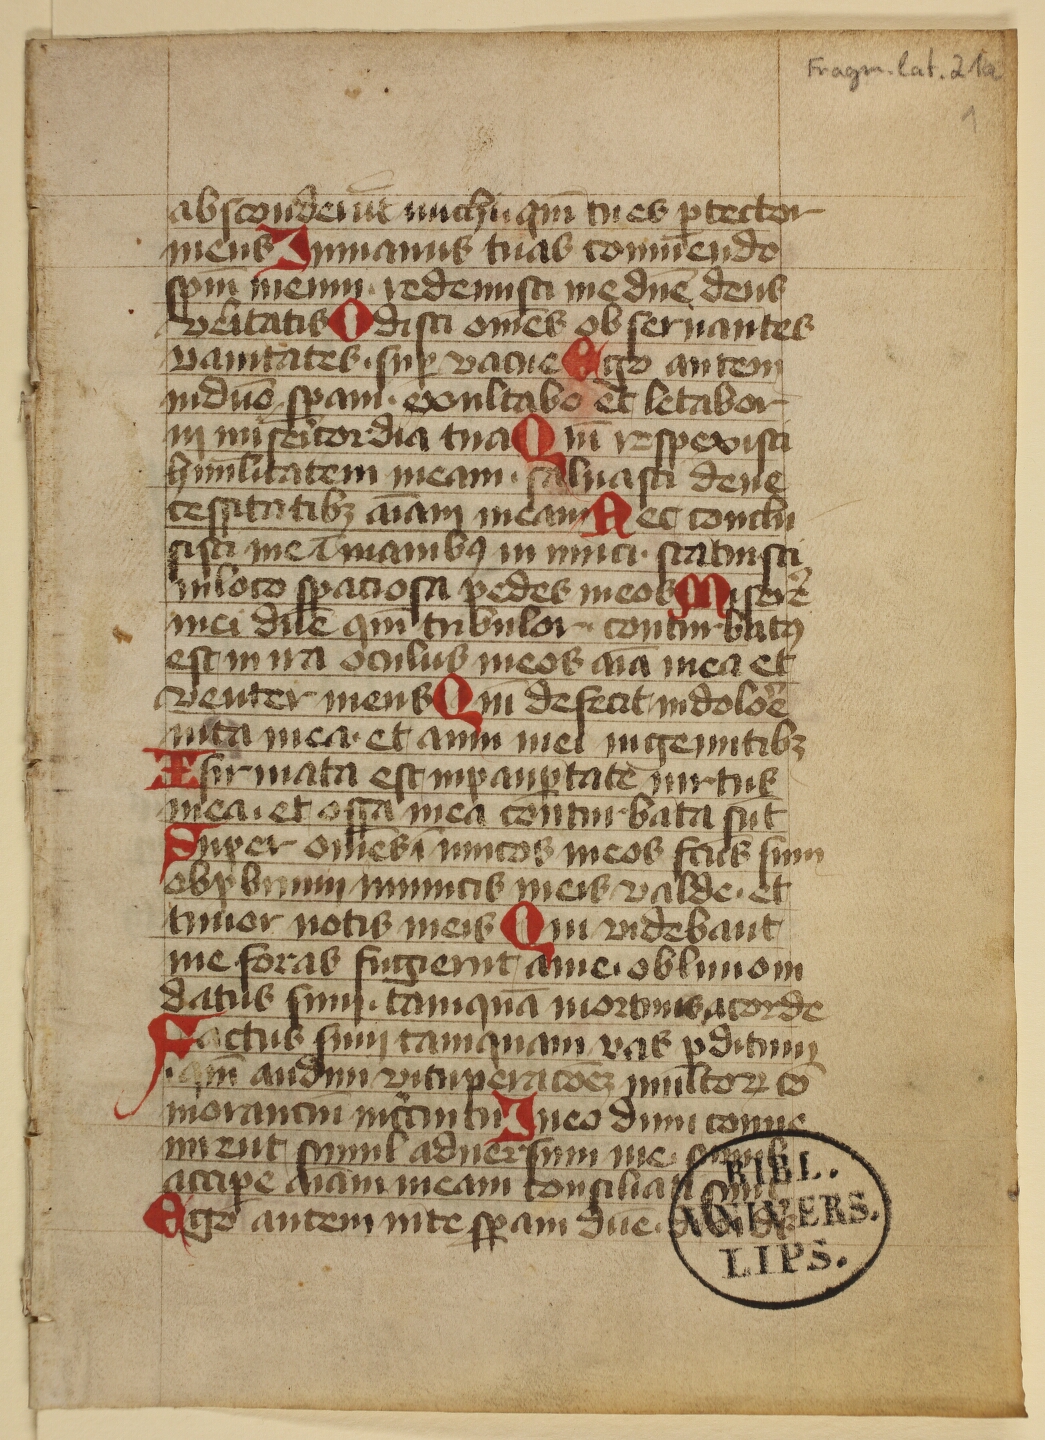 Fragm. lat. 21a
1
absconderūt michi qm̄ tu es ꝑtector
meus In manus tuas commendo
spm̄ meum · redemisti me dn̄e deus
veritatis Odisti om̄es observantes
vanitates · supervacue Ego autem
in dn̄o spaui · exultabo et letabor
in misericordia tua Qm̄ respexisti
humilitatem meam · saluasti de ne
cessitatibꝫ aīam meam Nec conclu
sisti me ī manibꝰ inimici · statuisti
in loco spaciosa pedes meos Miserē
mei dn̄e qm̄ tribulor · conturbatꝰ
est in ira oculus meos aīa mea et
venter meus Qm̄ defecit in dolore
uita mea · et anni mei in gemitibꝫ
Īfirmata est in paupertate uirtus
mea · et ossa mea conturbata sūt
Super om̄es īimicos meos fc̄us sum
obprbrium uicinis meis valde · et
timor notis meis Qui videbant
me foras fugierūt a me · obliuioni
datus sum · tamquā mortuus a corde
Factus sum tamquam vas ꝑditum
· qm̄ audiui vituperacōeꝫ multoꝝ cō
moranciū in circuitu In eo dum conue
nirēt simul aduersum me ·
accipe aīam meam consiliati sunt
Ego autem in te spaui dn̄e · dixi ds
BIBL.
VNIVERS.
LIPS.